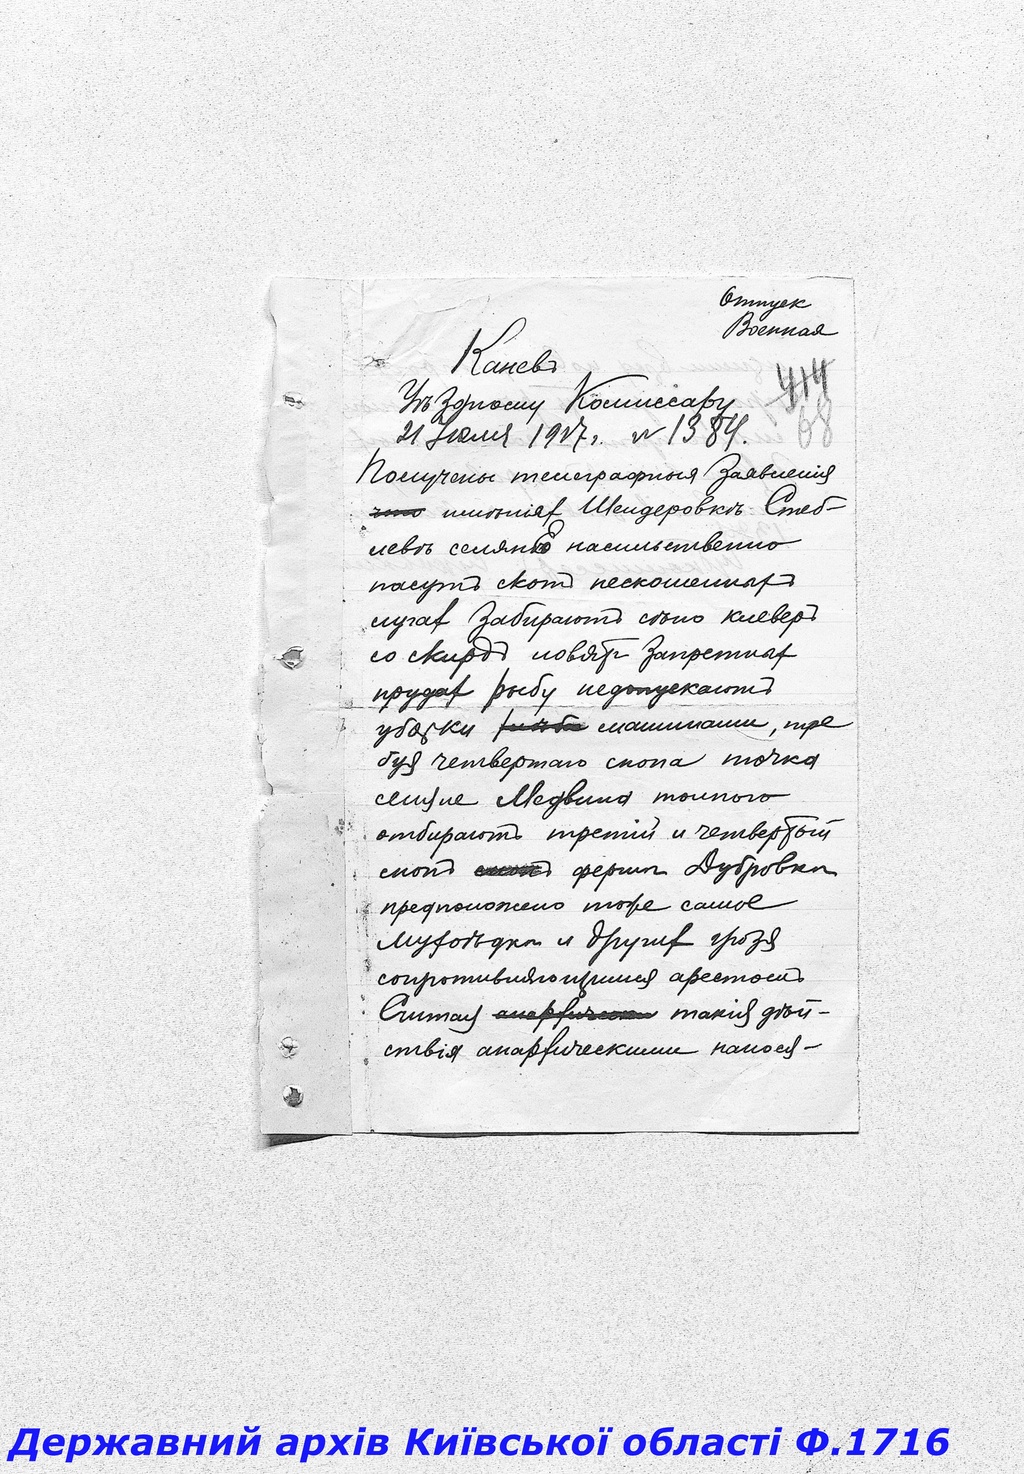 Отпуск
Военная
Каневъ
Уѣздному Комиссару
414
68
21 Июля 1917 г. № 1384.
Получены телеграфныя Заявленія
что имѣніях Шендеровкѣ Стеб-
левѣ селяне насильственно
пасутъ скотъ нескошенныхъ
лугах Забираютъ сѣно клеверъ
со скирдъ ловятъ Запретных
прудах рыбу недопускаютъ
уборки машинами, тре
буя четвертаго снопа точка
селяне Медвина толпою
отбираютъ третій и четвертый
снопъ снопъ фермы Дубровка
предположено тоже самое
и других грозя
сопротивляющимся арестомъ
Считая анархически такія дѣй-
ствія анархическими нанося-
Державний архів Київської області Ф.1716